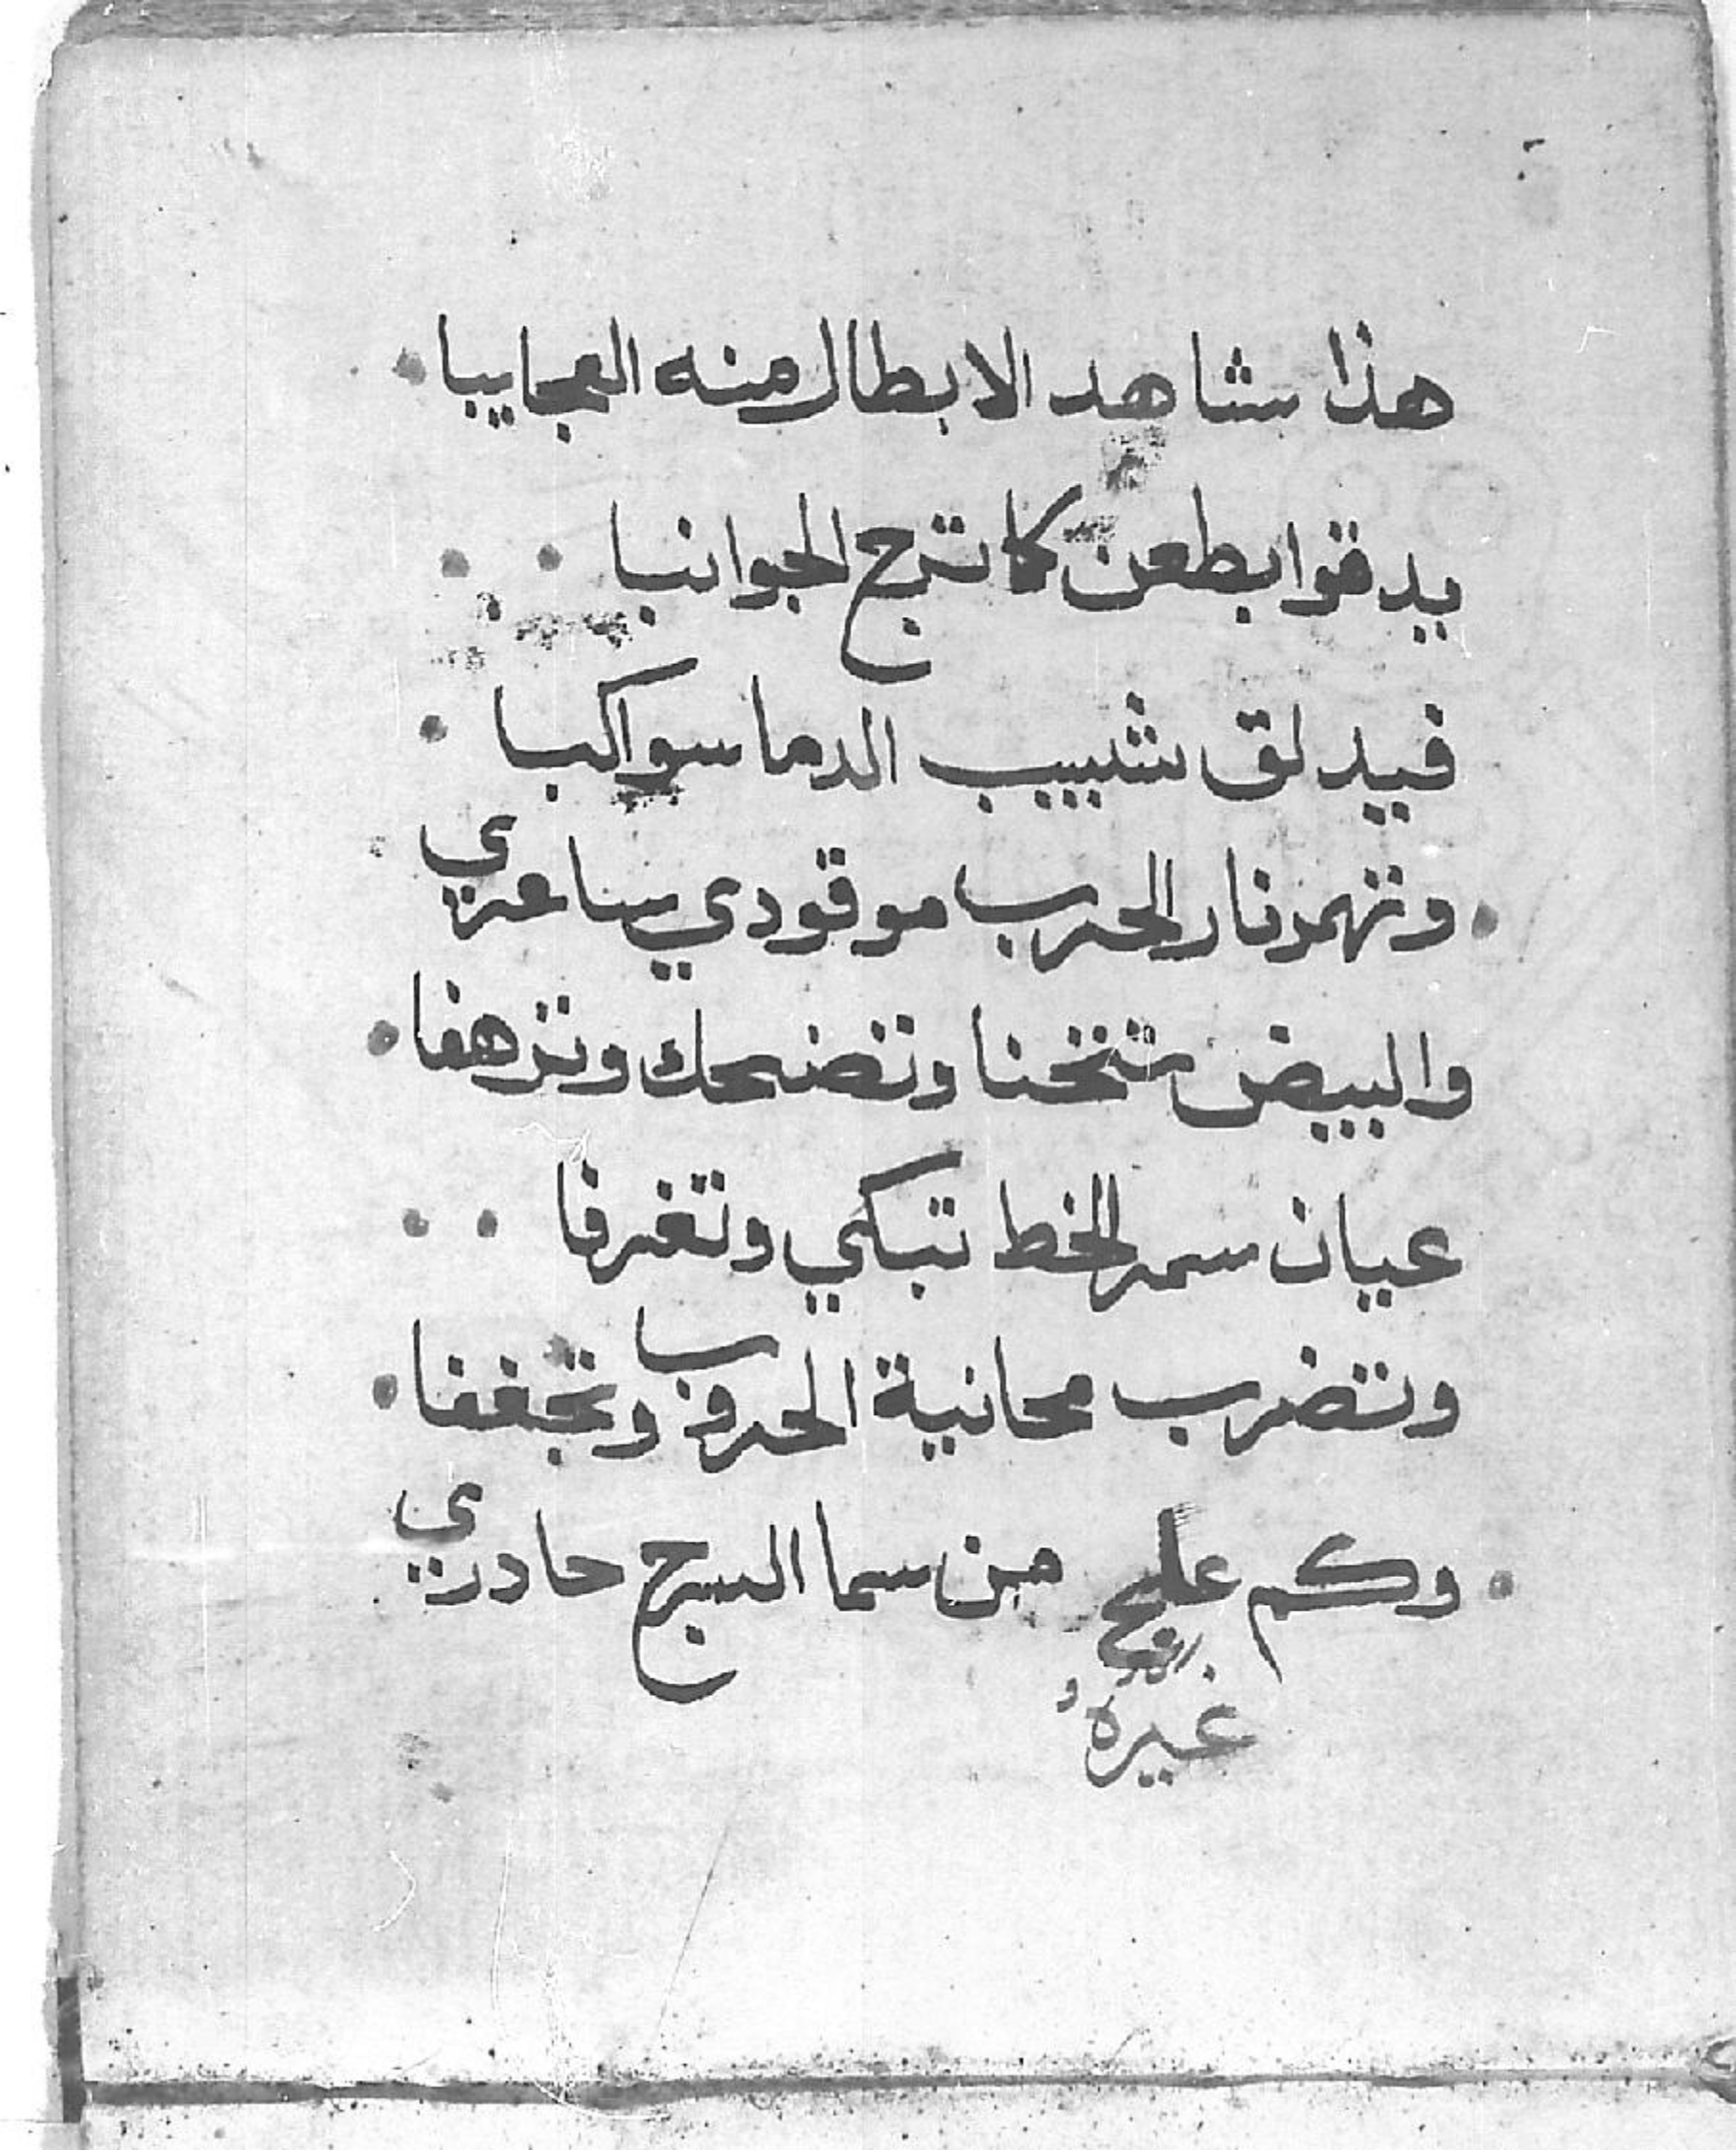 هذا يشاهد الابطال منه العجايبا
يدفوا بطعن كما ترج الجوانبا
فيدلق شبيب الدما سواكبا
وتهمد نار الحرب موقودي ساعريي
والبيض تنخنا وتضحك وتزهفا
عيان سمر الخط تبكي وتغرفا
وتضرب محانية الحروب وتجغفا
وكم علج من سما السرج حادريي
غيره